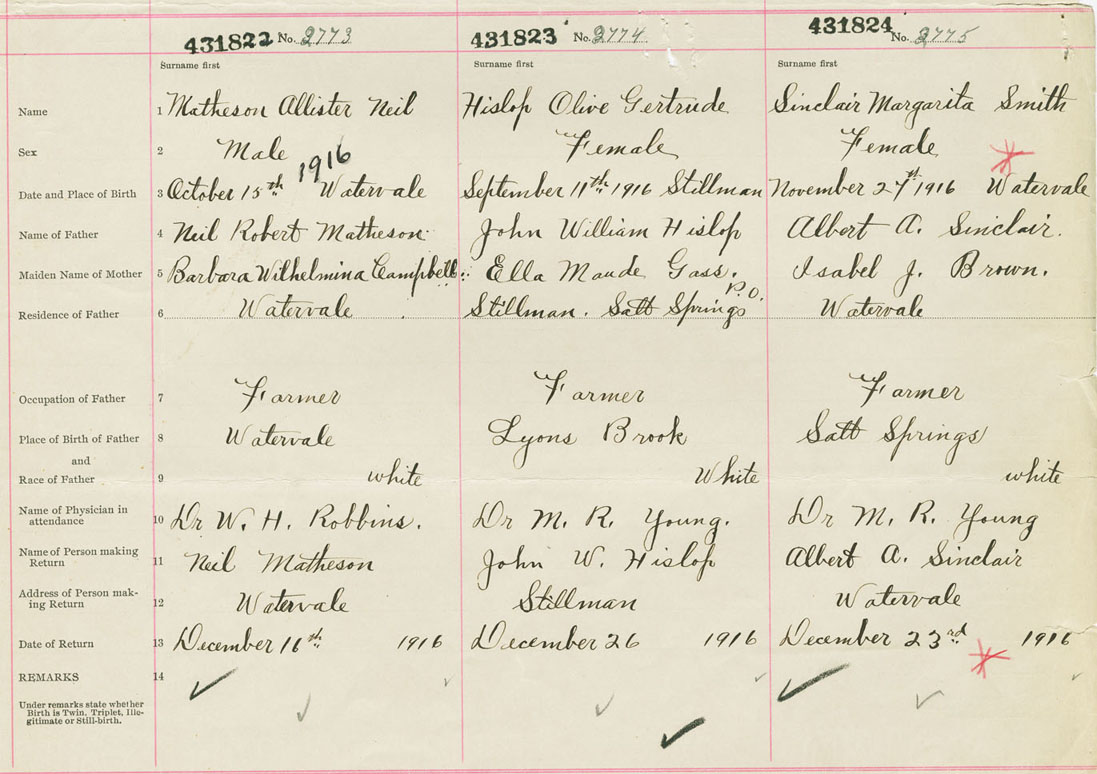 431822 No. 2773 431823 No. 2774 431824 No. 2775
Surname first Surname first Surname first
Name 1 Matheson Allister Neil Hislop Olive Gertrude Sinclair Margarita Smith
Sex 2 Male Female Female
1916
Date and Place of Birth 3 October 15th Watervale September 11th 1916 Stillman November 27st 1916 Watervale
Name of Father 4 Neil Robert Matheson John William Hislop Albert A. Sinclair.
Maiden Name of Mother 5 Barbara Wilhelmina Campbell Ella Maude Gass. Isabel J. Brown.
Residence of Father 6 Watervale Stillman. Salt Springs P.O. Watervale
Occupation of Father 7 Farmer Farmer Farmer
Place of Birth of Father 8 Watervale Lyons Brook Salt Springs
and
Race of Father 9 white White white
Name of Physician in
attendance 10 Dr W. H. Robbins. Dr M. R. Young. Dr M. R. Young
Name of Person making
Return 11 Neil Matheson John W. Hislop Albert A. Sinclair
Address of Person mak-
ing Return 12 Watervale Stillman Watervale
Date of Return 13 December 16th 1916 December 26 1916 December 23rd 1916
REMARKS 14
Under remarks state whether
Birth is Twin, Triplet, Ille-
gitimate or Still-birth.